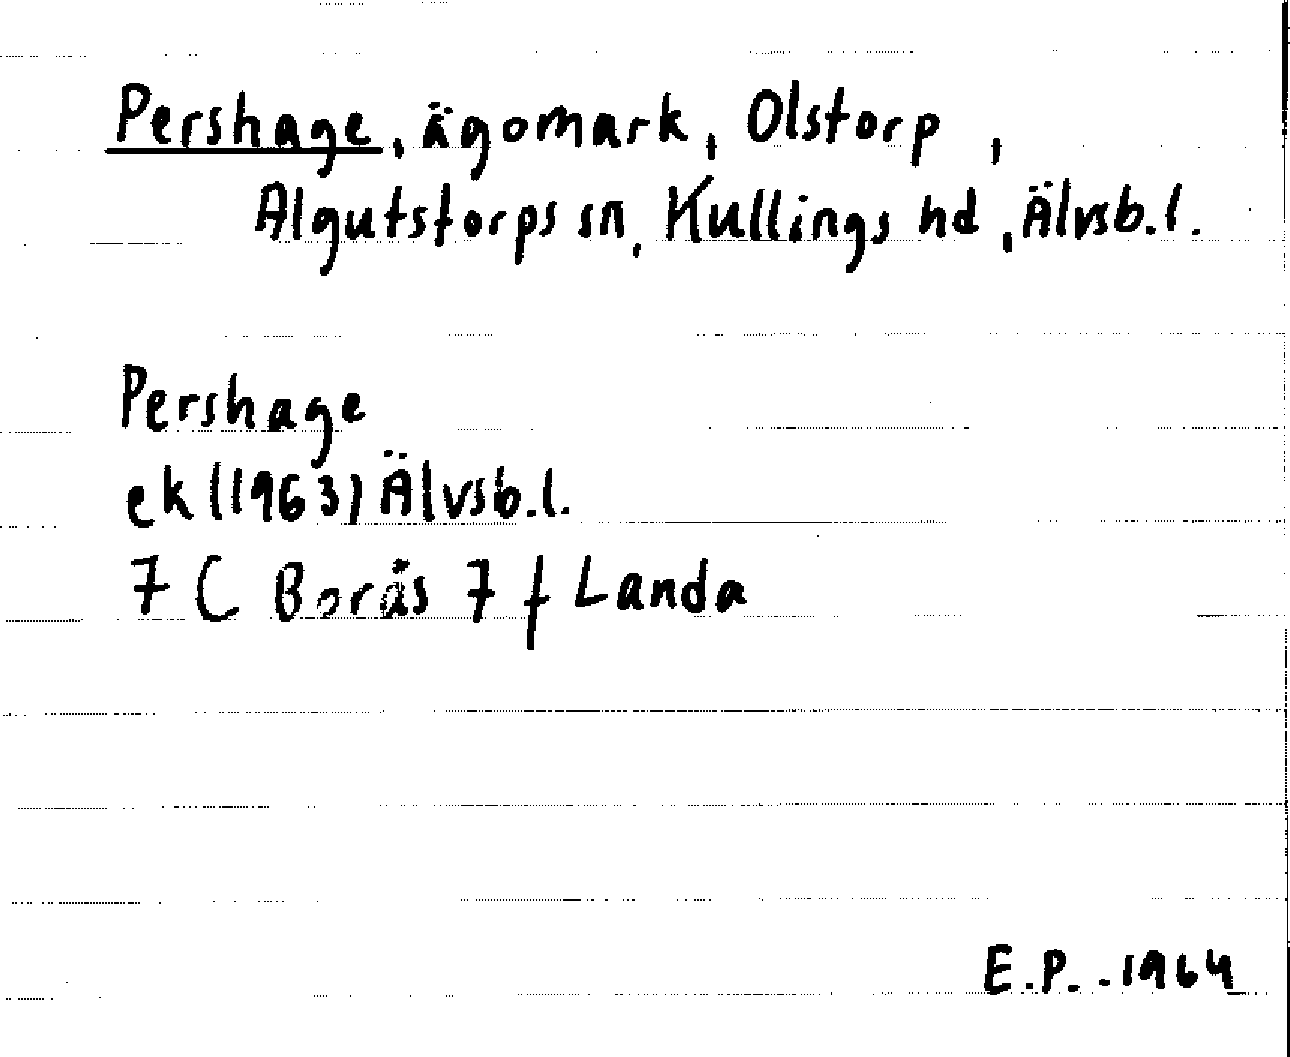 Pershage, ägomark, Olstorp,
Algutstorps sn, Kullings hd, Älvsb.l.
Pershage
ek (1963) Älvsb.l.
7 C Borås 7 f Landa
E.P. -1964